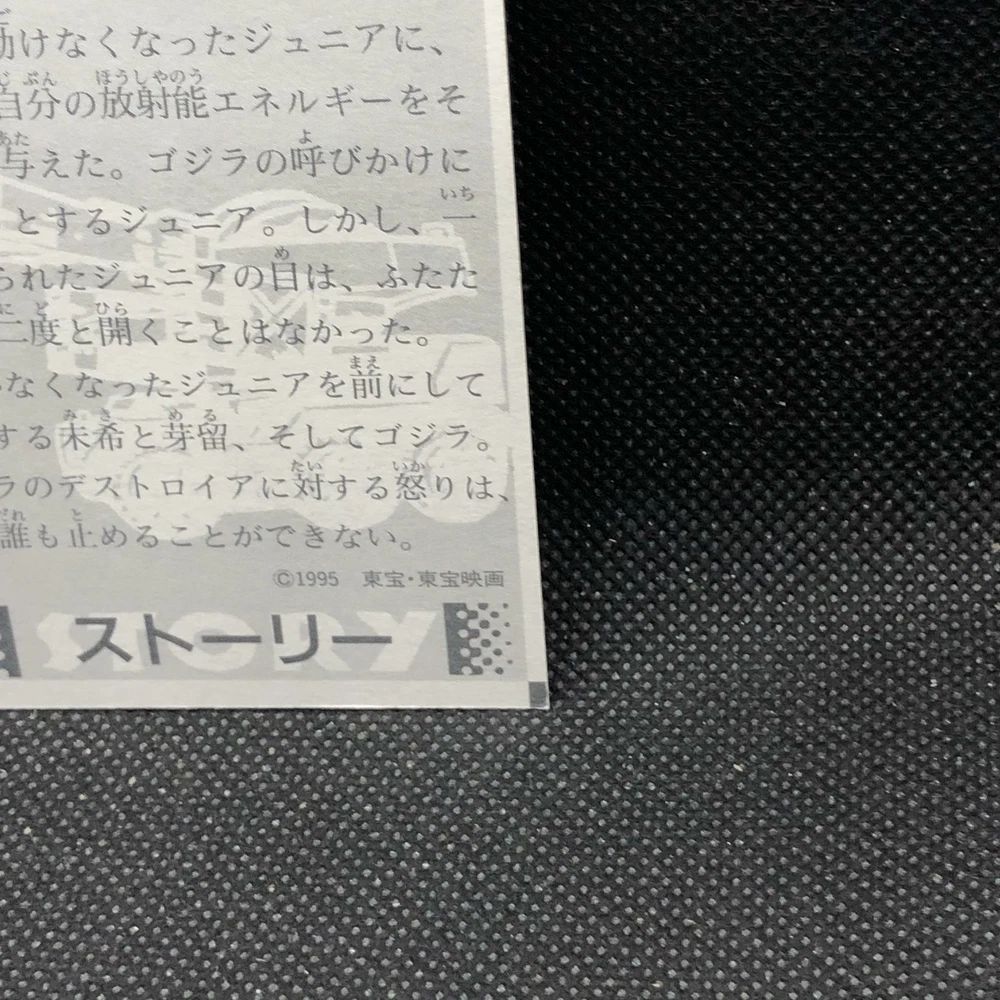 動けなくなったジュニアに、
自分の放射能エネルギーをそ
与えた。ゴジラの呼びかけに
とするジュニア。しかし、一
られたジュニアの目は、ふたた
二度と開くことはなかった。
なくなったジュニアを前にして
する未希と芽留、そしてゴジラ。
ラのデストロイアに対する怒りは、
誰も止めることができない。
©1995 東宝・東宝映画
STORY
ストーリー